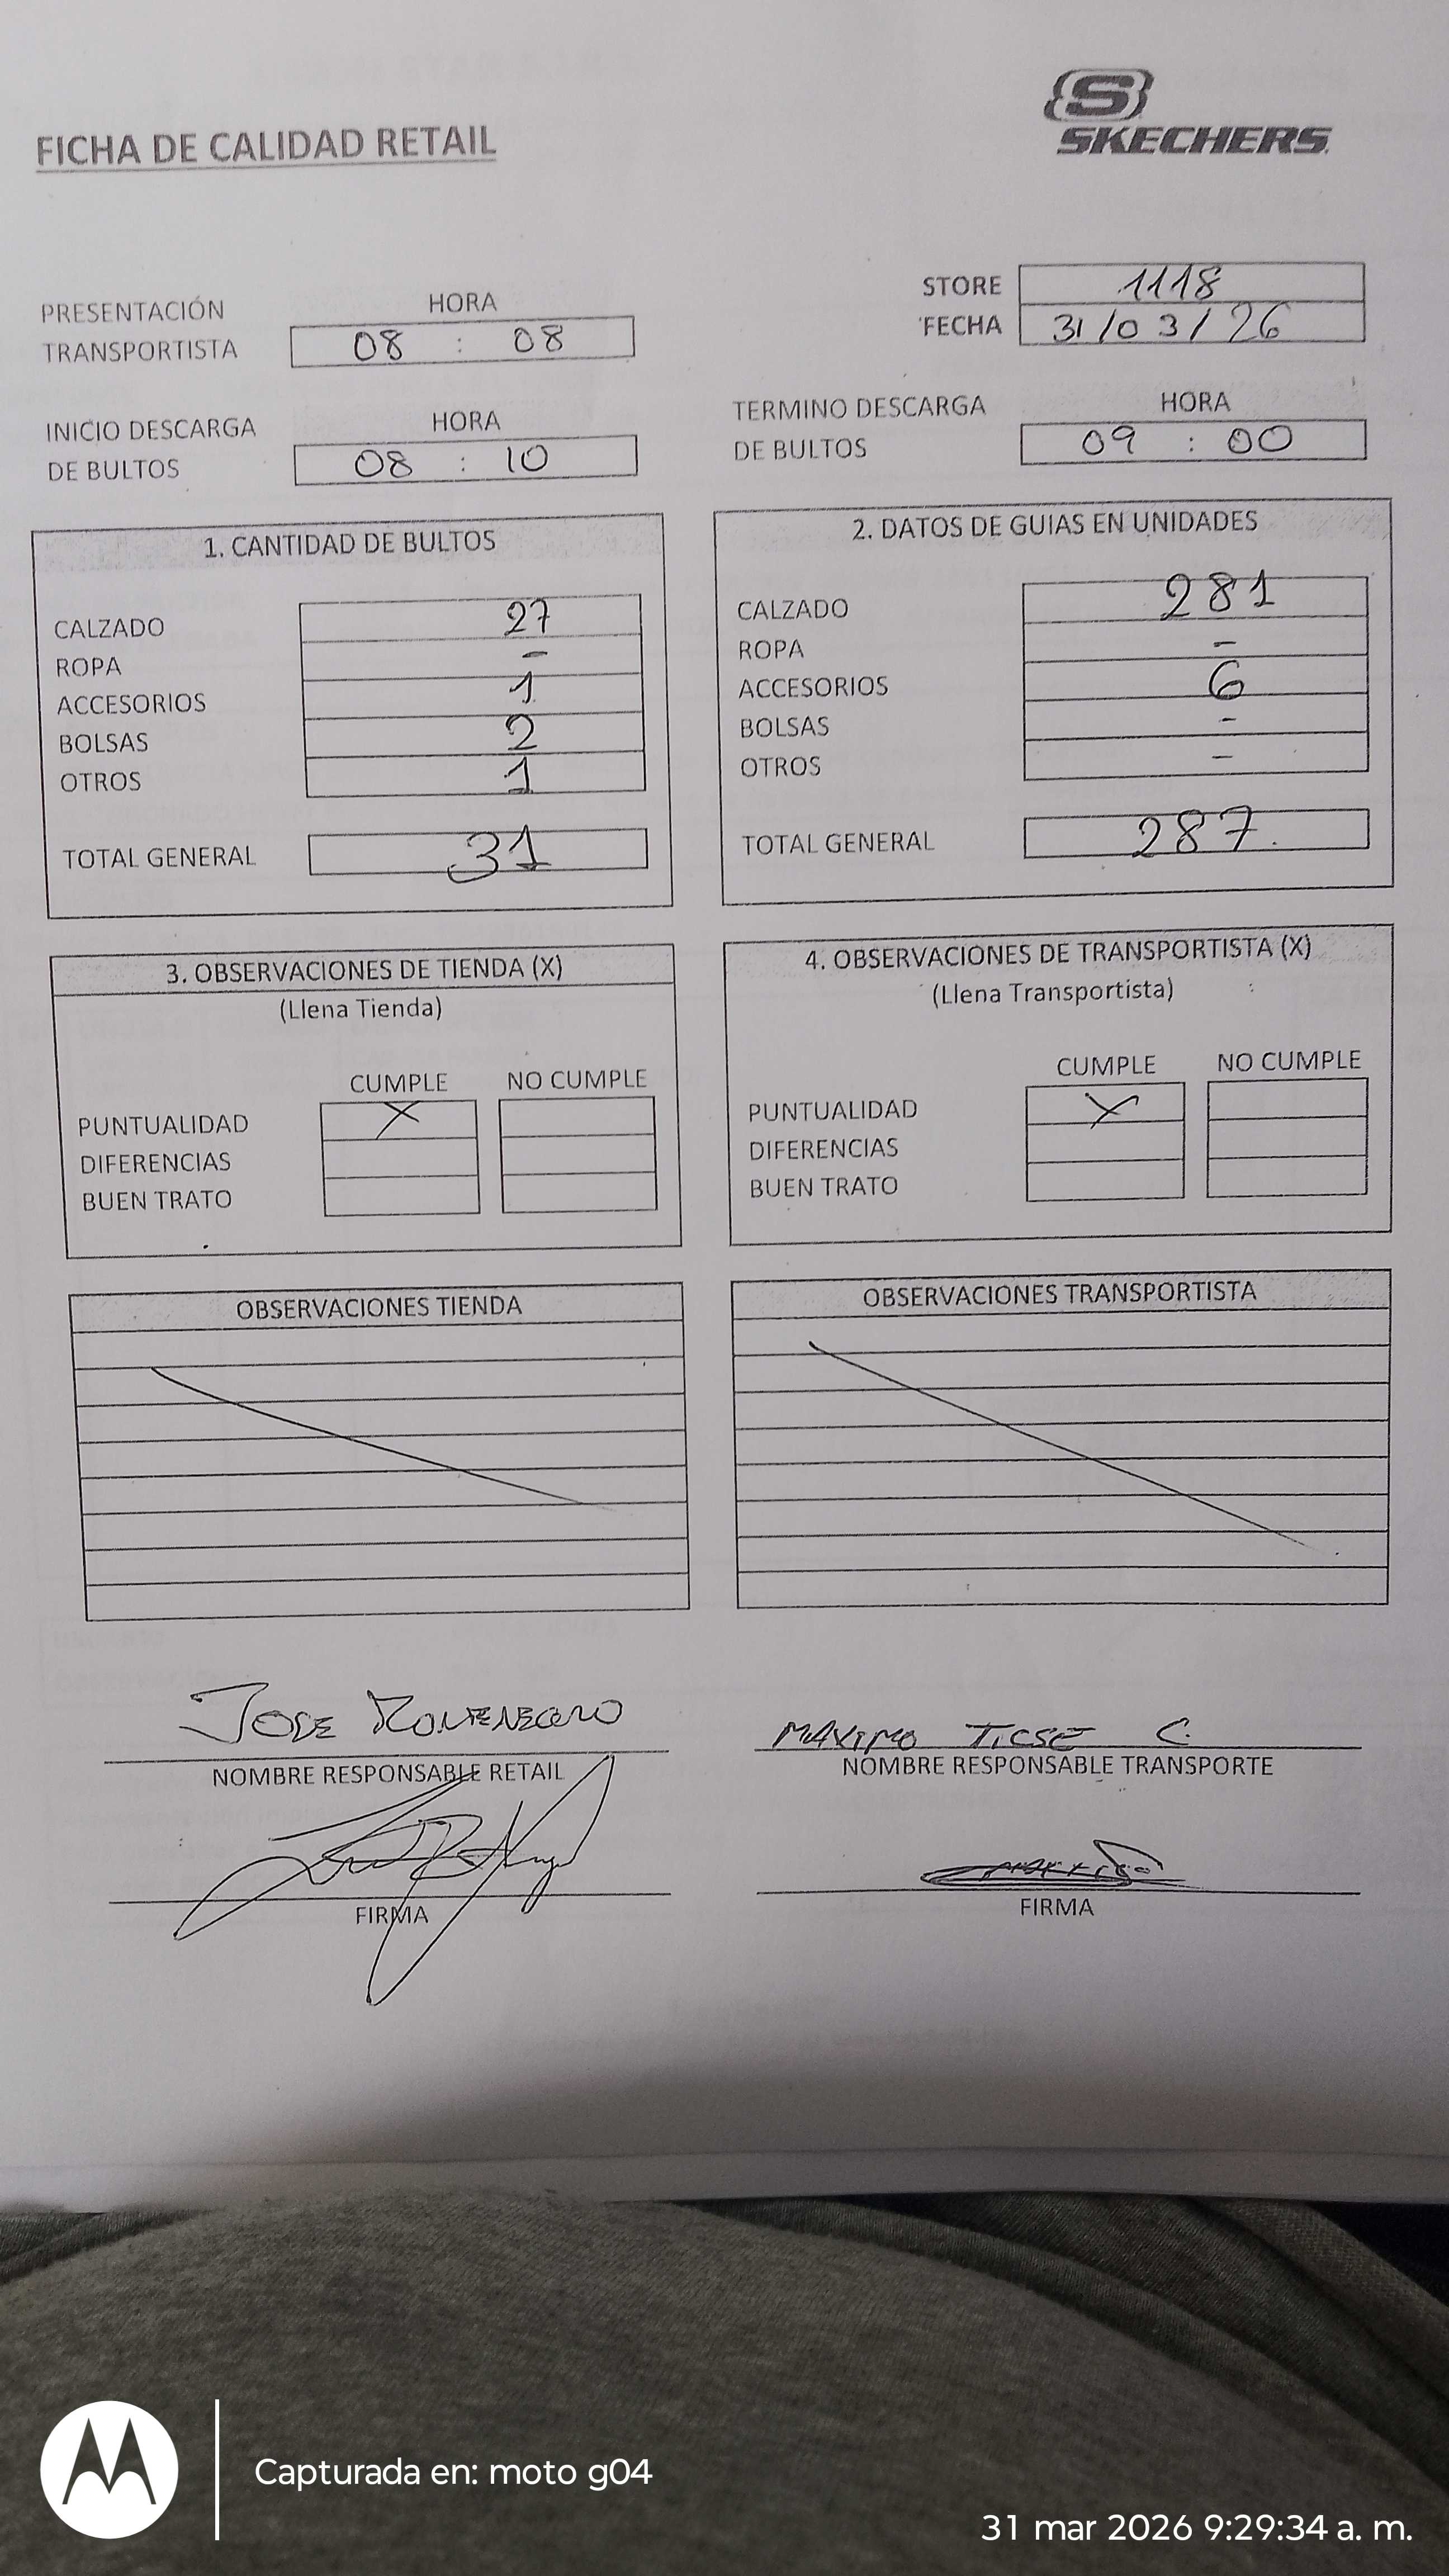 SKECHERS
FICHA DE CALIDAD RETAIL
STORE 1118
FECHA 31/03/26
PRESENTACIÓN TRANSPORTISTA HORA 08 : 08
INICIO DESCARGA DE BULTOS HORA 08 : 10
TERMINO DESCARGA DE BULTOS HORA 09 : 00
1. CANTIDAD DE BULTOS
CALZADO 27
ROPA -
ACCESORIOS 1
BOLSAS 2
OTROS 1
TOTAL GENERAL 31
2. DATOS DE GUIAS EN UNIDADES
CALZADO 281
ROPA -
ACCESORIOS 6
BOLSAS -
OTROS -
TOTAL GENERAL 287
3. OBSERVACIONES DE TIENDA (X)
(Llena Tienda)
CUMPLE NO CUMPLE
PUNTUALIDAD X
DIFERENCIAS
BUEN TRATO
4. OBSERVACIONES DE TRANSPORTISTA (X)
(Llena Transportista)
CUMPLE NO CUMPLE
PUNTUALIDAD X
DIFERENCIAS
BUEN TRATO
OBSERVACIONES TIENDA
OBSERVACIONES TRANSPORTISTA
JOSE
NOMBRE RESPONSABLE RETAIL
FIRMA
MAXIMO TICSE C.
NOMBRE RESPONSABLE TRANSPORTE
FIRMA
Capturada en: moto g04
31 mar 2026 9:29:34 a. m.